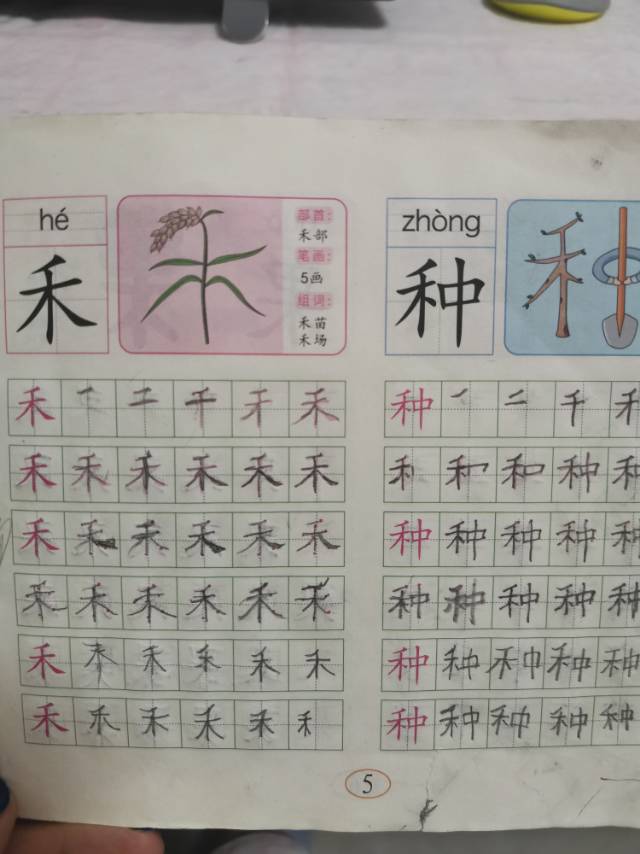 hé
禾
部首：
禾部
笔画：
5画
组词：
禾苗
禾场
zhòng
种
禾 禾
禾 禾 禾 禾 禾 禾
禾 禾 禾 禾 禾 禾
禾 禾 禾 禾 禾 禾
禾 禾 禾 禾 禾 禾
禾 禾 禾 禾 禾
种 二 千
禾 种 种
种 种 种 种 种
种 种 种 种 种
种 种 种 种 种
种 种 种 种 种
5